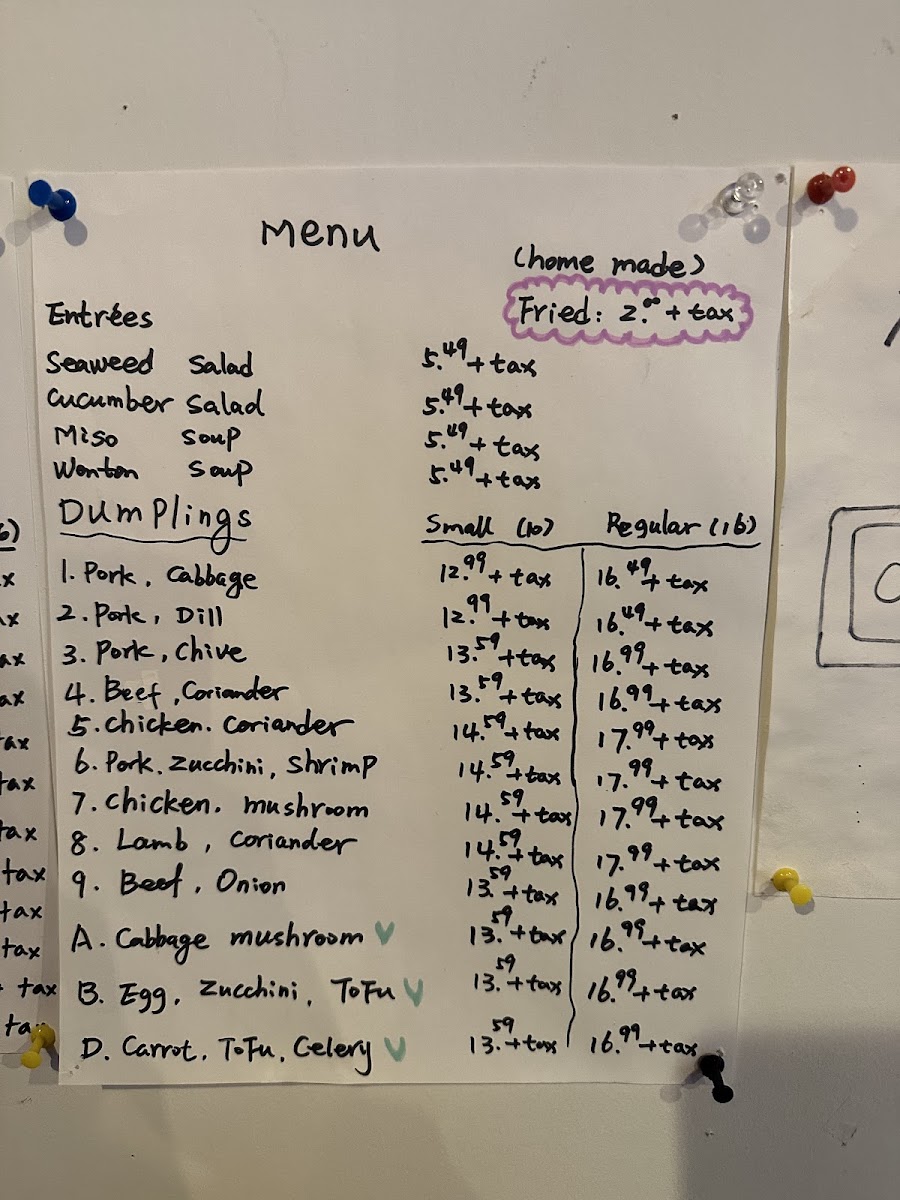 Menu
(home made)
Fried: 2.00 + tax
Entrées
Seaweed Salad 5.49 + tax
Cucumber Salad 5.49 + tax
Miso Soup 5.49 + tax
Wonton Soup 5.49 + tax
Dumplings Small (10) Regular (16)
1. Pork, Cabbage 12.99 + tax 16.49 + tax
2. Pork, Dill 12.99 + tax 16.49 + tax
3. Pork, Chive 13.59 + tax 16.99 + tax
4. Beef, Coriander 13.59 + tax 16.99 + tax
5. Chicken. Coriander 14.59 + tax 17.99 + tax
6. Pork. Zucchini, Shrimp 14.59 + tax 17.99 + tax
7. Chicken. mushroom 14.59 + tax 17.99 + tax
8. Lamb, Coriander 14.59 + tax 17.99 + tax
9. Beef, Onion 13.59 + tax 16.99 + tax
A. Cabbage mushroom V 13.59 + tax 16.99 + tax
B. Egg, Zucchini, ToFu V 13.59 + tax 16.99 + tax
D. Carrot, ToFu, Celery V 13.59 + tax 16.99 + tax